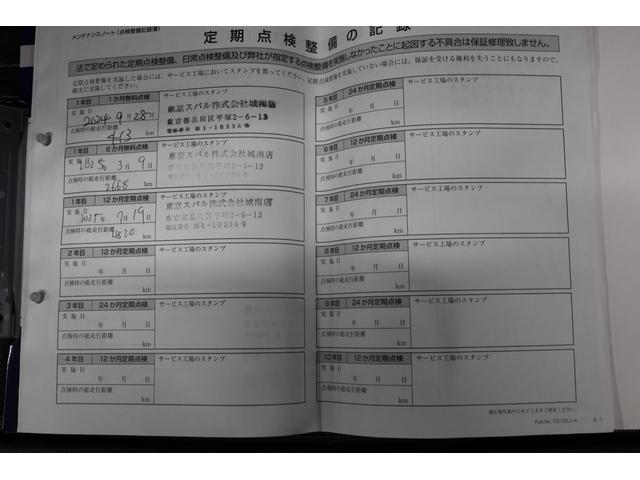 メンテナンスノート（点検整備記録簿）
定期点検整備の記録
法で定められた定期点検整備、日常点検整備及び弊社が指定する点検整備を実施しなかったことに起因する不具合は保証修理致しません。
定期点検整備を実施した場合には、サービス工場においてスタンプを貰ってください。定期点検整備を実施していない場合には、保証を受ける権利を失うことにもなりますので、
確実に実施してください。
1年目 1か月無料点検
サービス工場のスタンプ
実施日
2024年9月28日
点検時の総走行距離
413 km
東京スバル株式会社城南店
東京都品川区平塚2-6-13
1年目 6か月無料点検
サービス工場のスタンプ
実施日
2025年3月9日
点検時の総走行距離
2668 km
東京スバル株式会社城南店
1年目 12か月定期点検
サービス工場のスタンプ
実施日
2025年7月19日
点検時の総走行距離
4820 km
東京スバル株式会社城南店
東京都品川区平塚2-6-13
2年目 12か月定期点検
サービス工場のスタンプ
実施日
年 月 日
点検時の総走行距離
km
3年目 24か月定期点検
サービス工場のスタンプ
実施日
年 月 日
点検時の総走行距離
km
4年目 12か月定期点検
サービス工場のスタンプ
実施日
年 月 日
点検時の総走行距離
km
5年目 24か月定期点検
サービス工場のスタンプ
実施日
年 月 日
点検時の総走行距離
km
6年目 12か月定期点検
サービス工場のスタンプ
実施日
年 月 日
点検時の総走行距離
km
7年目 24か月定期点検
サービス工場のスタンプ
実施日
年 月 日
点検時の総走行距離
km
8年目 12か月定期点検
サービス工場のスタンプ
実施日
年 月 日
点検時の総走行距離
km
9年目 24か月定期点検
サービス工場のスタンプ
実施日
年 月 日
点検時の総走行距離
km
10年目 12か月定期点検
サービス工場のスタンプ
実施日
年 月 日
点検時の総走行距離
km